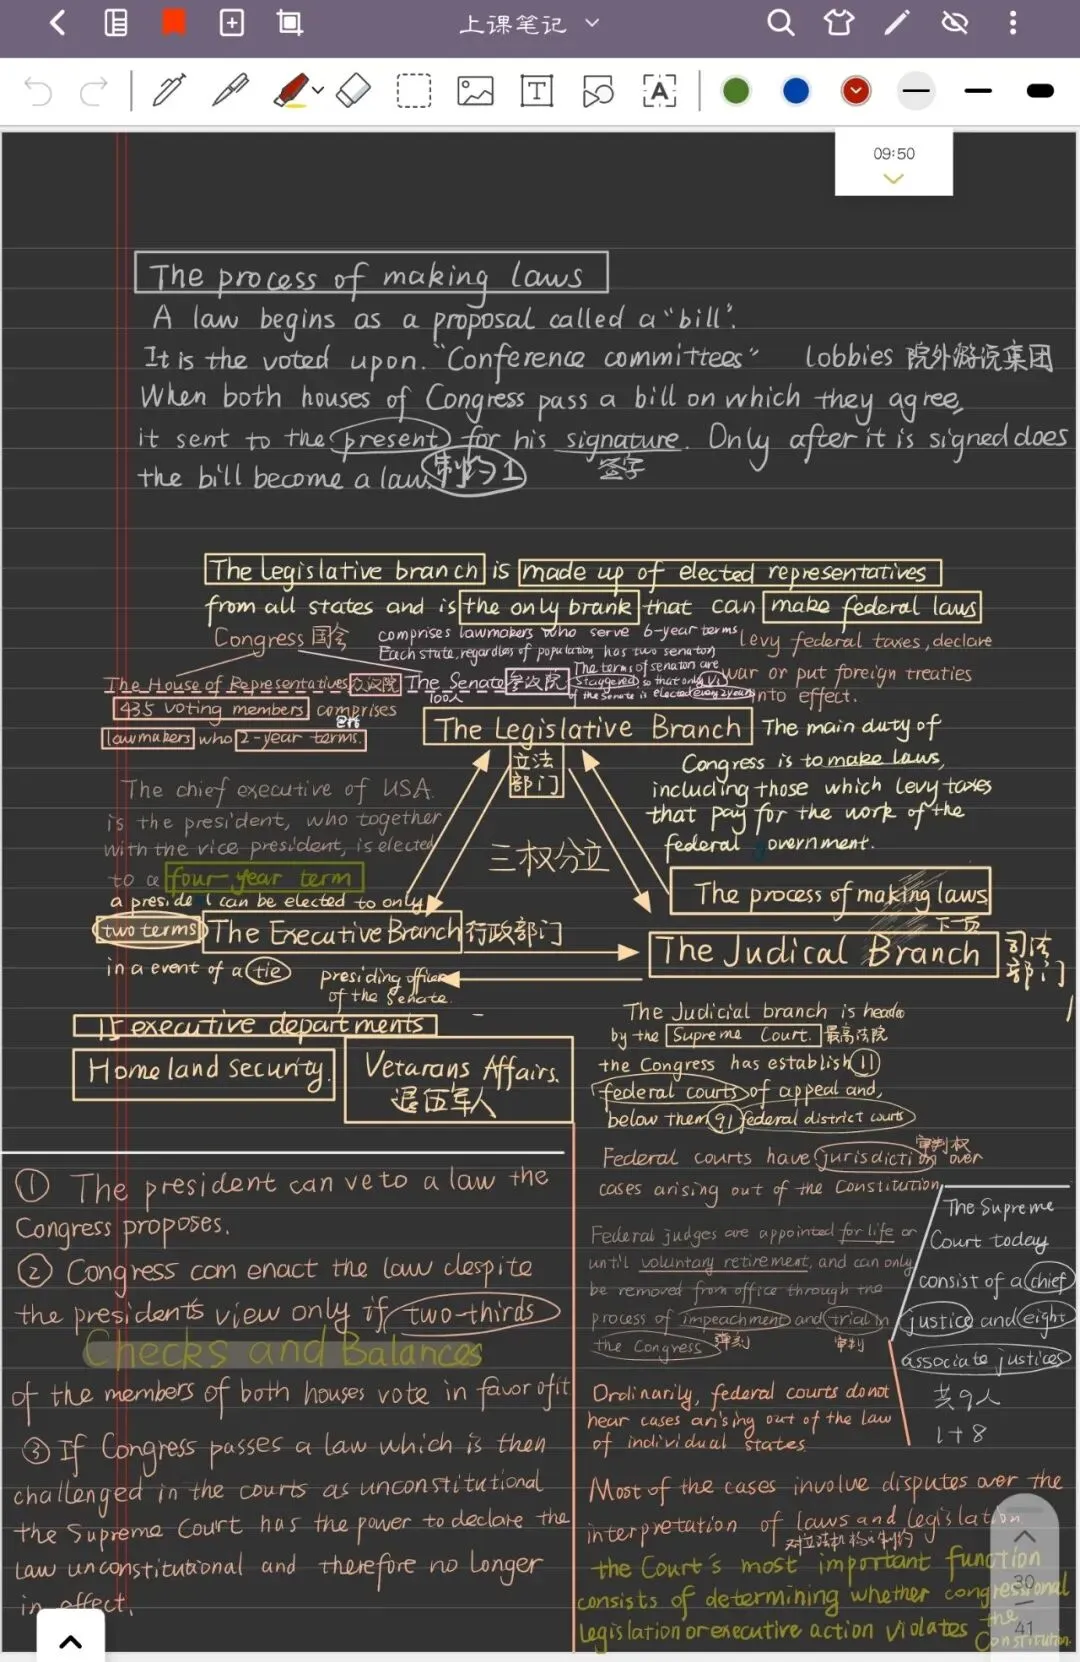 上课笔记
09:50
The process of making laws
A law begins as a proposal called a "bill".
It is the voted upon. "Conference committees" lobbies 院外游说集团
When both houses of Congress pass a bill on which they agree,
it sent to the present for his signature. Only after it is signed does
签字
the bill become a law. 制约1
The Legislative branch is made up of elected representatives
from all states and is the only brank that can make federal laws
Congress 国会
comprises lawmakers who serve 6-year terms
Each state, regardless of population, has two senators
The terms of senators are
staggered so that only 1/3
of the Senate is elected every 2 years
levy federal taxes, declare
war or put foreign treaties
into effect.
The House of Representatives 众议院 The Senate 参议院
100人
435 voting members comprises
包括
lawmakers who 2-year terms.
The Legislative Branch
立法
部门
The main duty of
Congress is to make laws,
including those which levy taxes
that pay for the work of the
federal government.
The chief executive of USA.
is the president, who together
with the vice president, is elected
to a four-year term
a president can be elected to only
two terms
in a event of a tie
三权分立
The process of making laws
下一页
The Executive Branch 行政部门
The Judical Branch 司法
部门
presiding officer
of the Senate.
15 executive departments
Homeland Security.
Vetarans Affairs.
退伍军人
The Judicial branch is headed
by the Supreme Court. 最高法院
the Congress has establish 11
federal courts of appeal and,
below them 91 federal district courts
审判权
Federal courts have jurisdiction over
cases arising out of the Constitution
Federal judges are appointed for life or
until voluntary retirement, and can only
be removed from office through the
process of impeachment and trial in
the Congress 弹劾 审判
Ordinarily, federal courts do not
hear cases arising out of the law
of individual states
Most of the cases involve disputes over the
interpretation of laws and legislation
对立法机构的制约
the Court's most important function
consists of determining whether congressional
legislation or executive action violates the
Constitution.
The Supreme
Court today
consist of a chief
justice and eight
associate justices
共9人
1+8
① The president can veto a law the
Congress proposes.
② Congress can enact the law despite
the president's view only if two-thirds
Checks and Balances
of the members of both houses vote in favor of it
③ If Congress passes a law which is then
challenged in the courts as unconstitutional
the Supreme Court has the power to declare the
law unconstitutional and therefore no longer
in effect.
30
41